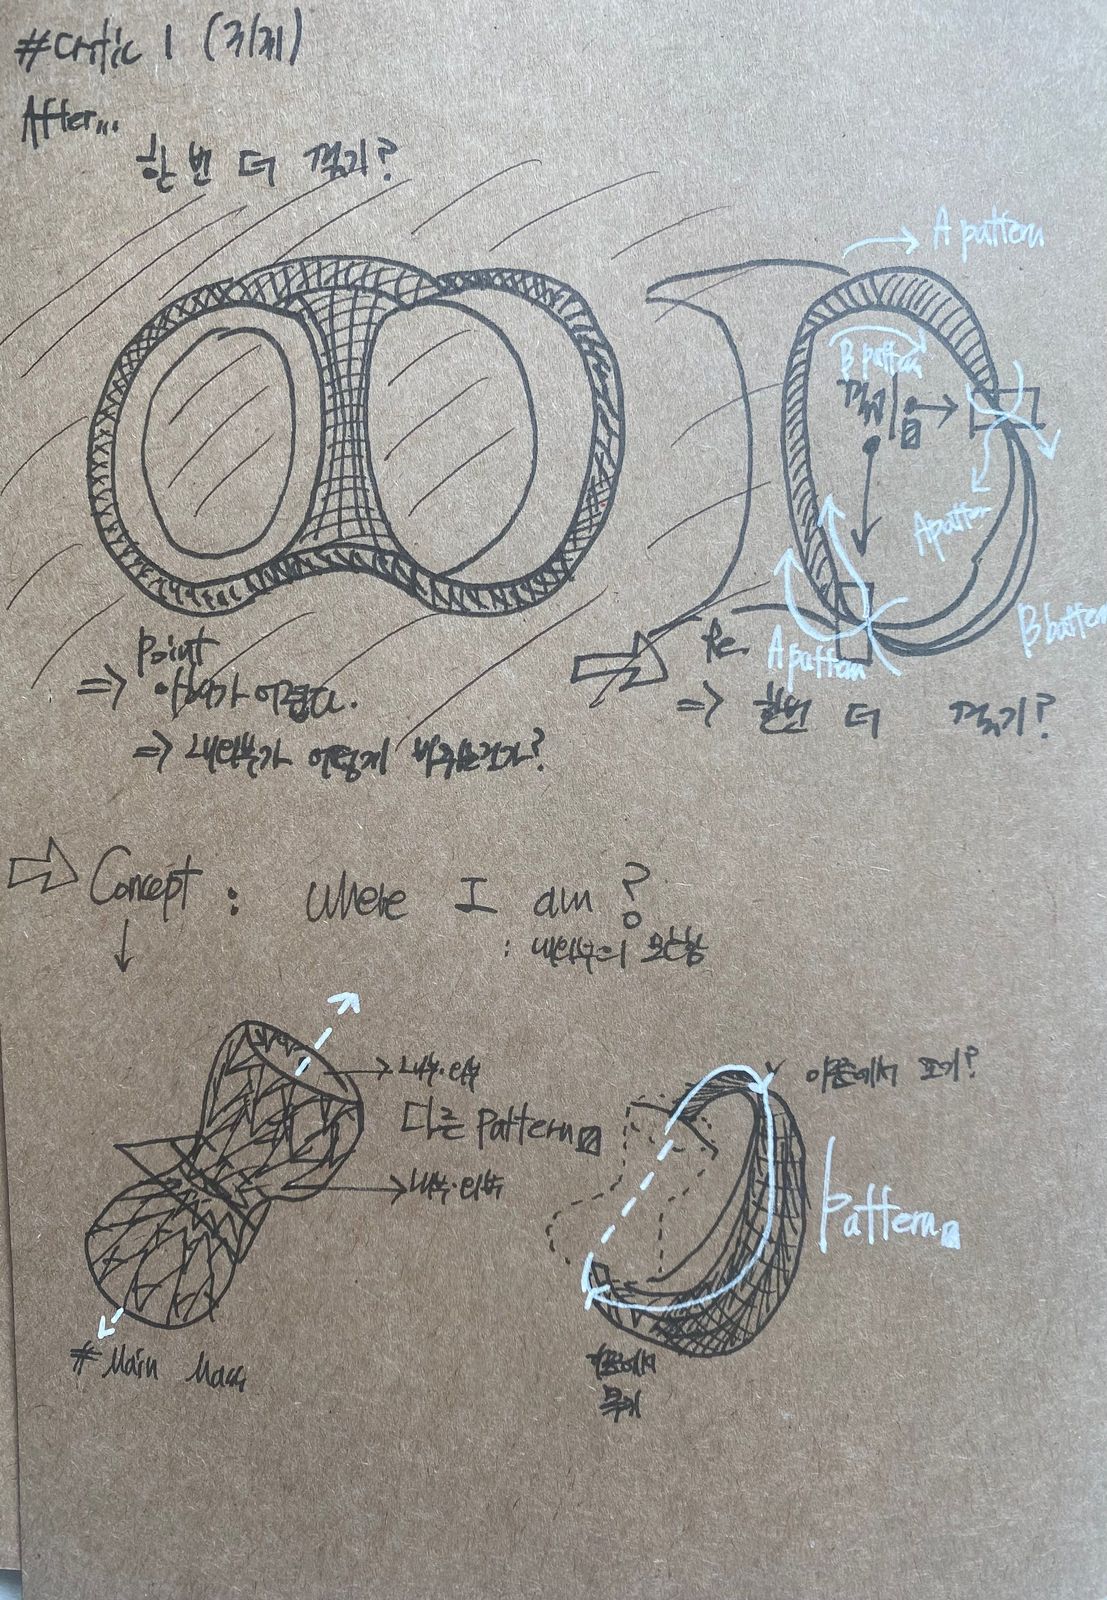 #Critic 1
After...
한 번 더 꺾기?
A pattern
B pattern
꺾기
A patter
B batter
A pattern
Point
=> 이해가 어렵다.
=> 내외부가 어떻게 바뀌는건가?
Re.
=> 한번 더 꺾기?
Concept : Where I am?
: 내외부의 모호함
내부·외부
다른 pattern
내부·외부
이쪽에서 보기?
pattern
# Main Mass